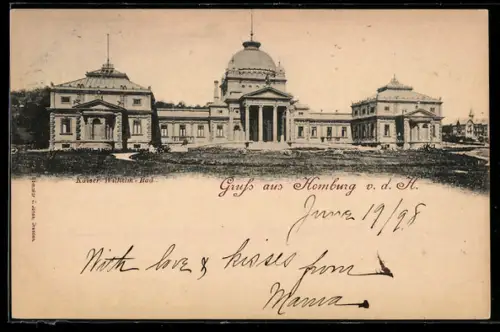 Kaiser-Wilhelm-Bad.
Gruß aus Homburg v. d. H.
June 19/98
With love & kisses from
Mama